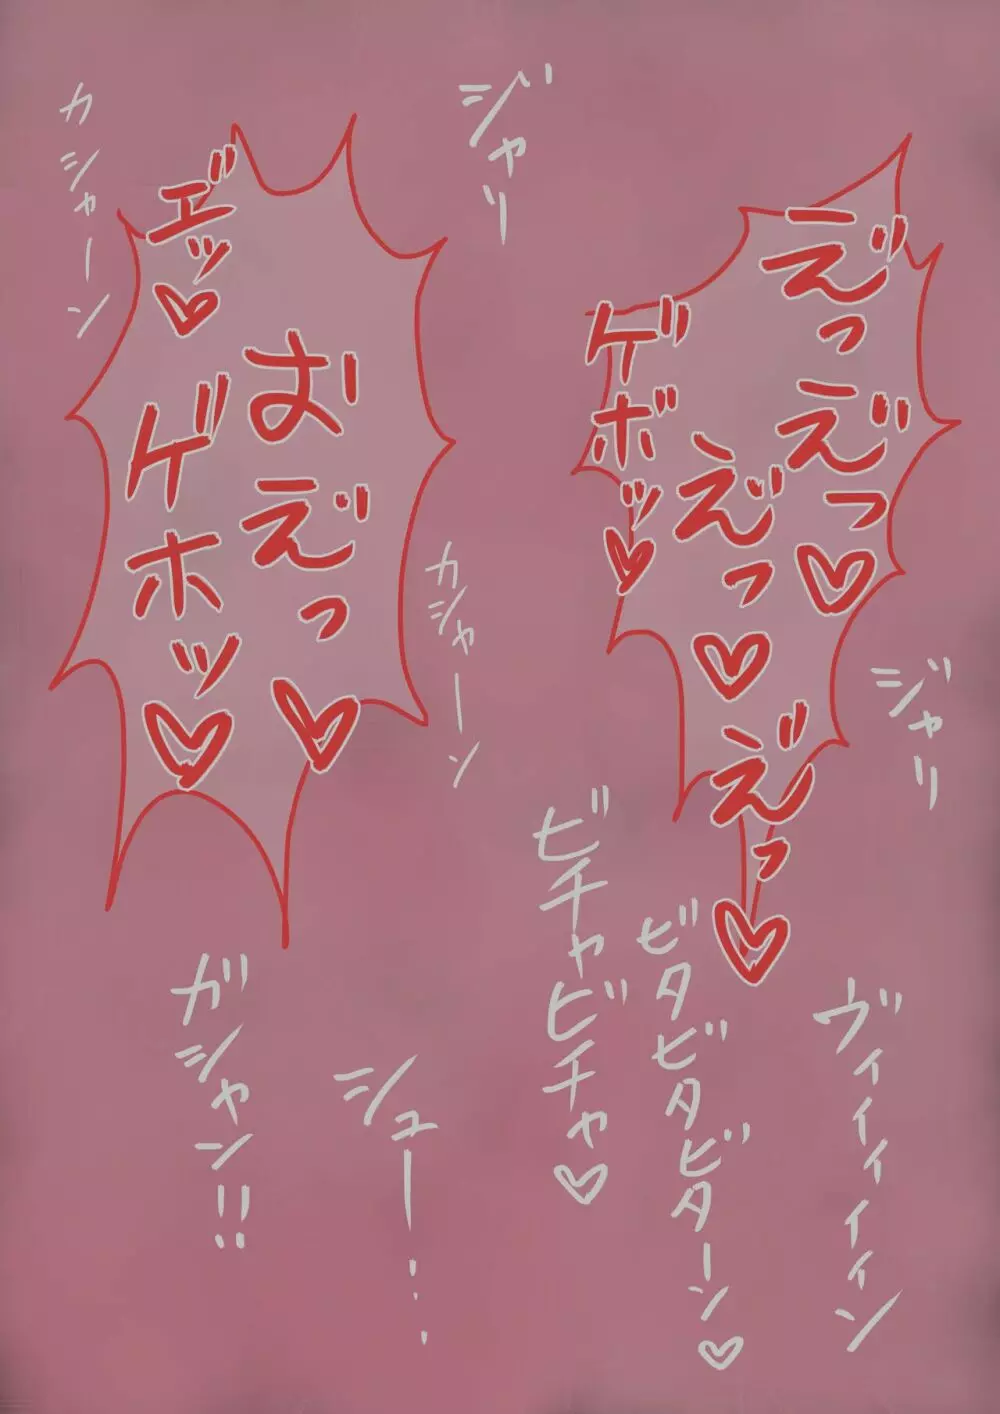 え゛っえ゛っ♡
え゛っ♡え゛っ♡
ゲボッ♡
ジャリ
おえ゛っ♡
ゲホッ♡
エ゛ッ♡
カシャーン
カシャーン
ジャリ
ヴィィィィィン
ビタビタビターン♡
ビチャビチャ♡
ジュー・・・
ガシャン!!